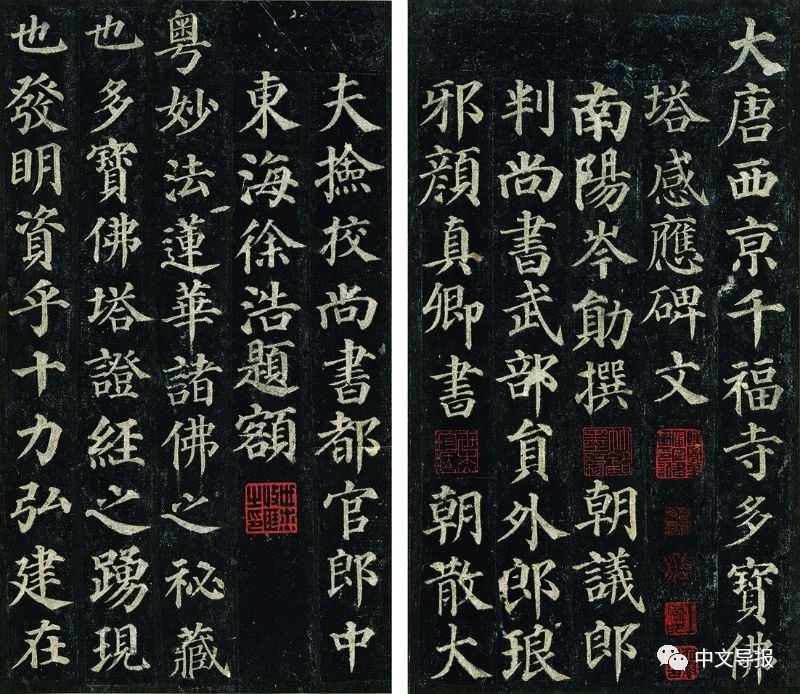 大唐西京千福寺多寶佛
塔感應碑文
南陽岑勛撰 朝議郎
判尚書武部貟外郎琅
邪顏真卿書 朝散大
夫撿挍尚書都官郎中
東海徐浩題額
粵妙法蓮華諸佛之祕藏
也多寶佛塔證經之踴現
也發明資乎十力弘建在
中文导报